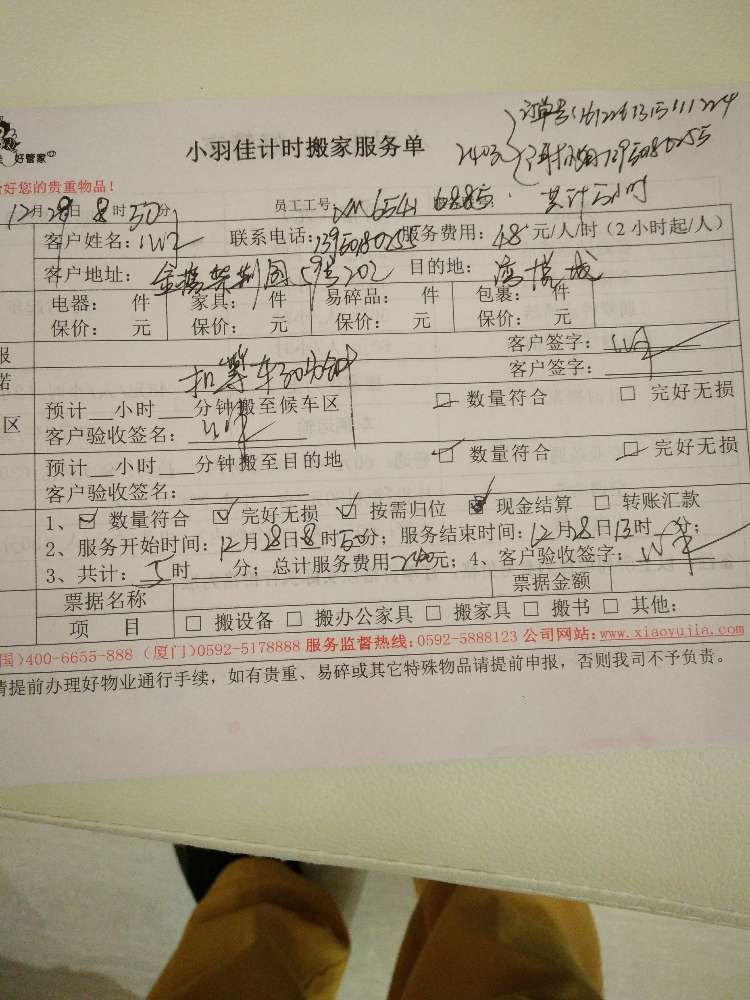 订单号
好管家
小羽佳计时搬家服务单
240元
共计5小时
好您的贵重物品!
12月28日8时50分
员工工号:
客户姓名: 联系电话: 服务费用:48元/人/时(2小时起/人)
客户地址: 目的地:
电器: 件 家具: 件 易碎品: 件 包裹: 件
保价: 元 保价: 元 保价: 元 保价: 元
客户签字:
客户签字:
报
诺
扣等车30分钟
区
预计__小时___分钟搬至候车区 数量符合 完好无损
客户验收签名:
预计__小时___分钟搬至目的地 数量符合 完好无损
客户验收签名:
1、数量符合 完好无损 按需归位 现金结算 转账汇款
2、服务开始时间:12月28日8时50分;服务结束时间:12月28日13时__分;
3、共计:5时___分;总计服务费用240元;4、客户验收签字:
票据名称 票据金额
项 目 搬设备 搬办公家具 搬家具 搬书 其他:
国)400-6655-888 (厦门)0592-5178888 服务监督热线:0592-5888123 公司网站:www.xiaoyujia.com
请提前办理好物业通行手续,如有贵重、易碎或其它特殊物品请提前申报,否则我司不予负责。